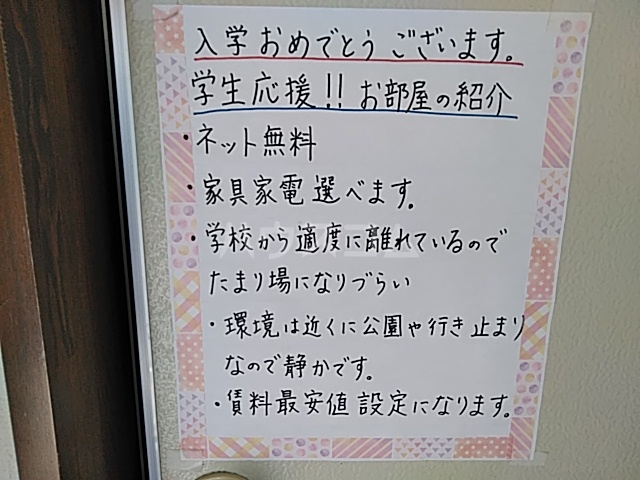 入学おめでとうございます。
学生応援!! お部屋の紹介
・ネット無料
・家具家電選べます。
・学校から適度に離れているので
たまり場になりづらい
・環境は近くに公園や行き止まり
なので静かです。
・賃料最安値設定になります。